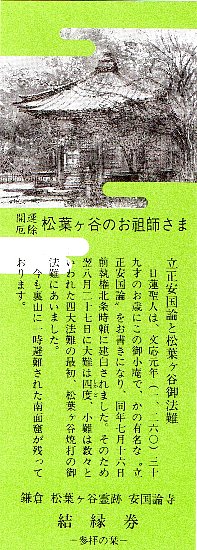 開運
厄除
松葉ヶ谷のお祖師さま
立正安国論と松葉ヶ谷御法難
日蓮聖人は、文応元年(一、二六〇)三十
九才のお歳にこの御小庵で、かの有名な〝立
正安国論〟をお書きになり、同年七月十六日
前執権北条時頼に建白されました。そのため
翌八月二十七日に大難は四度、小難は数々と
いわれた四大法難の最初、松葉ヶ谷焼打の御
法難にあいました。
今も裏山に一時避難された南面窟が残って
おります。
鎌倉 松葉ヶ谷霊跡 安国論寺
結縁券
―参拝の栞―